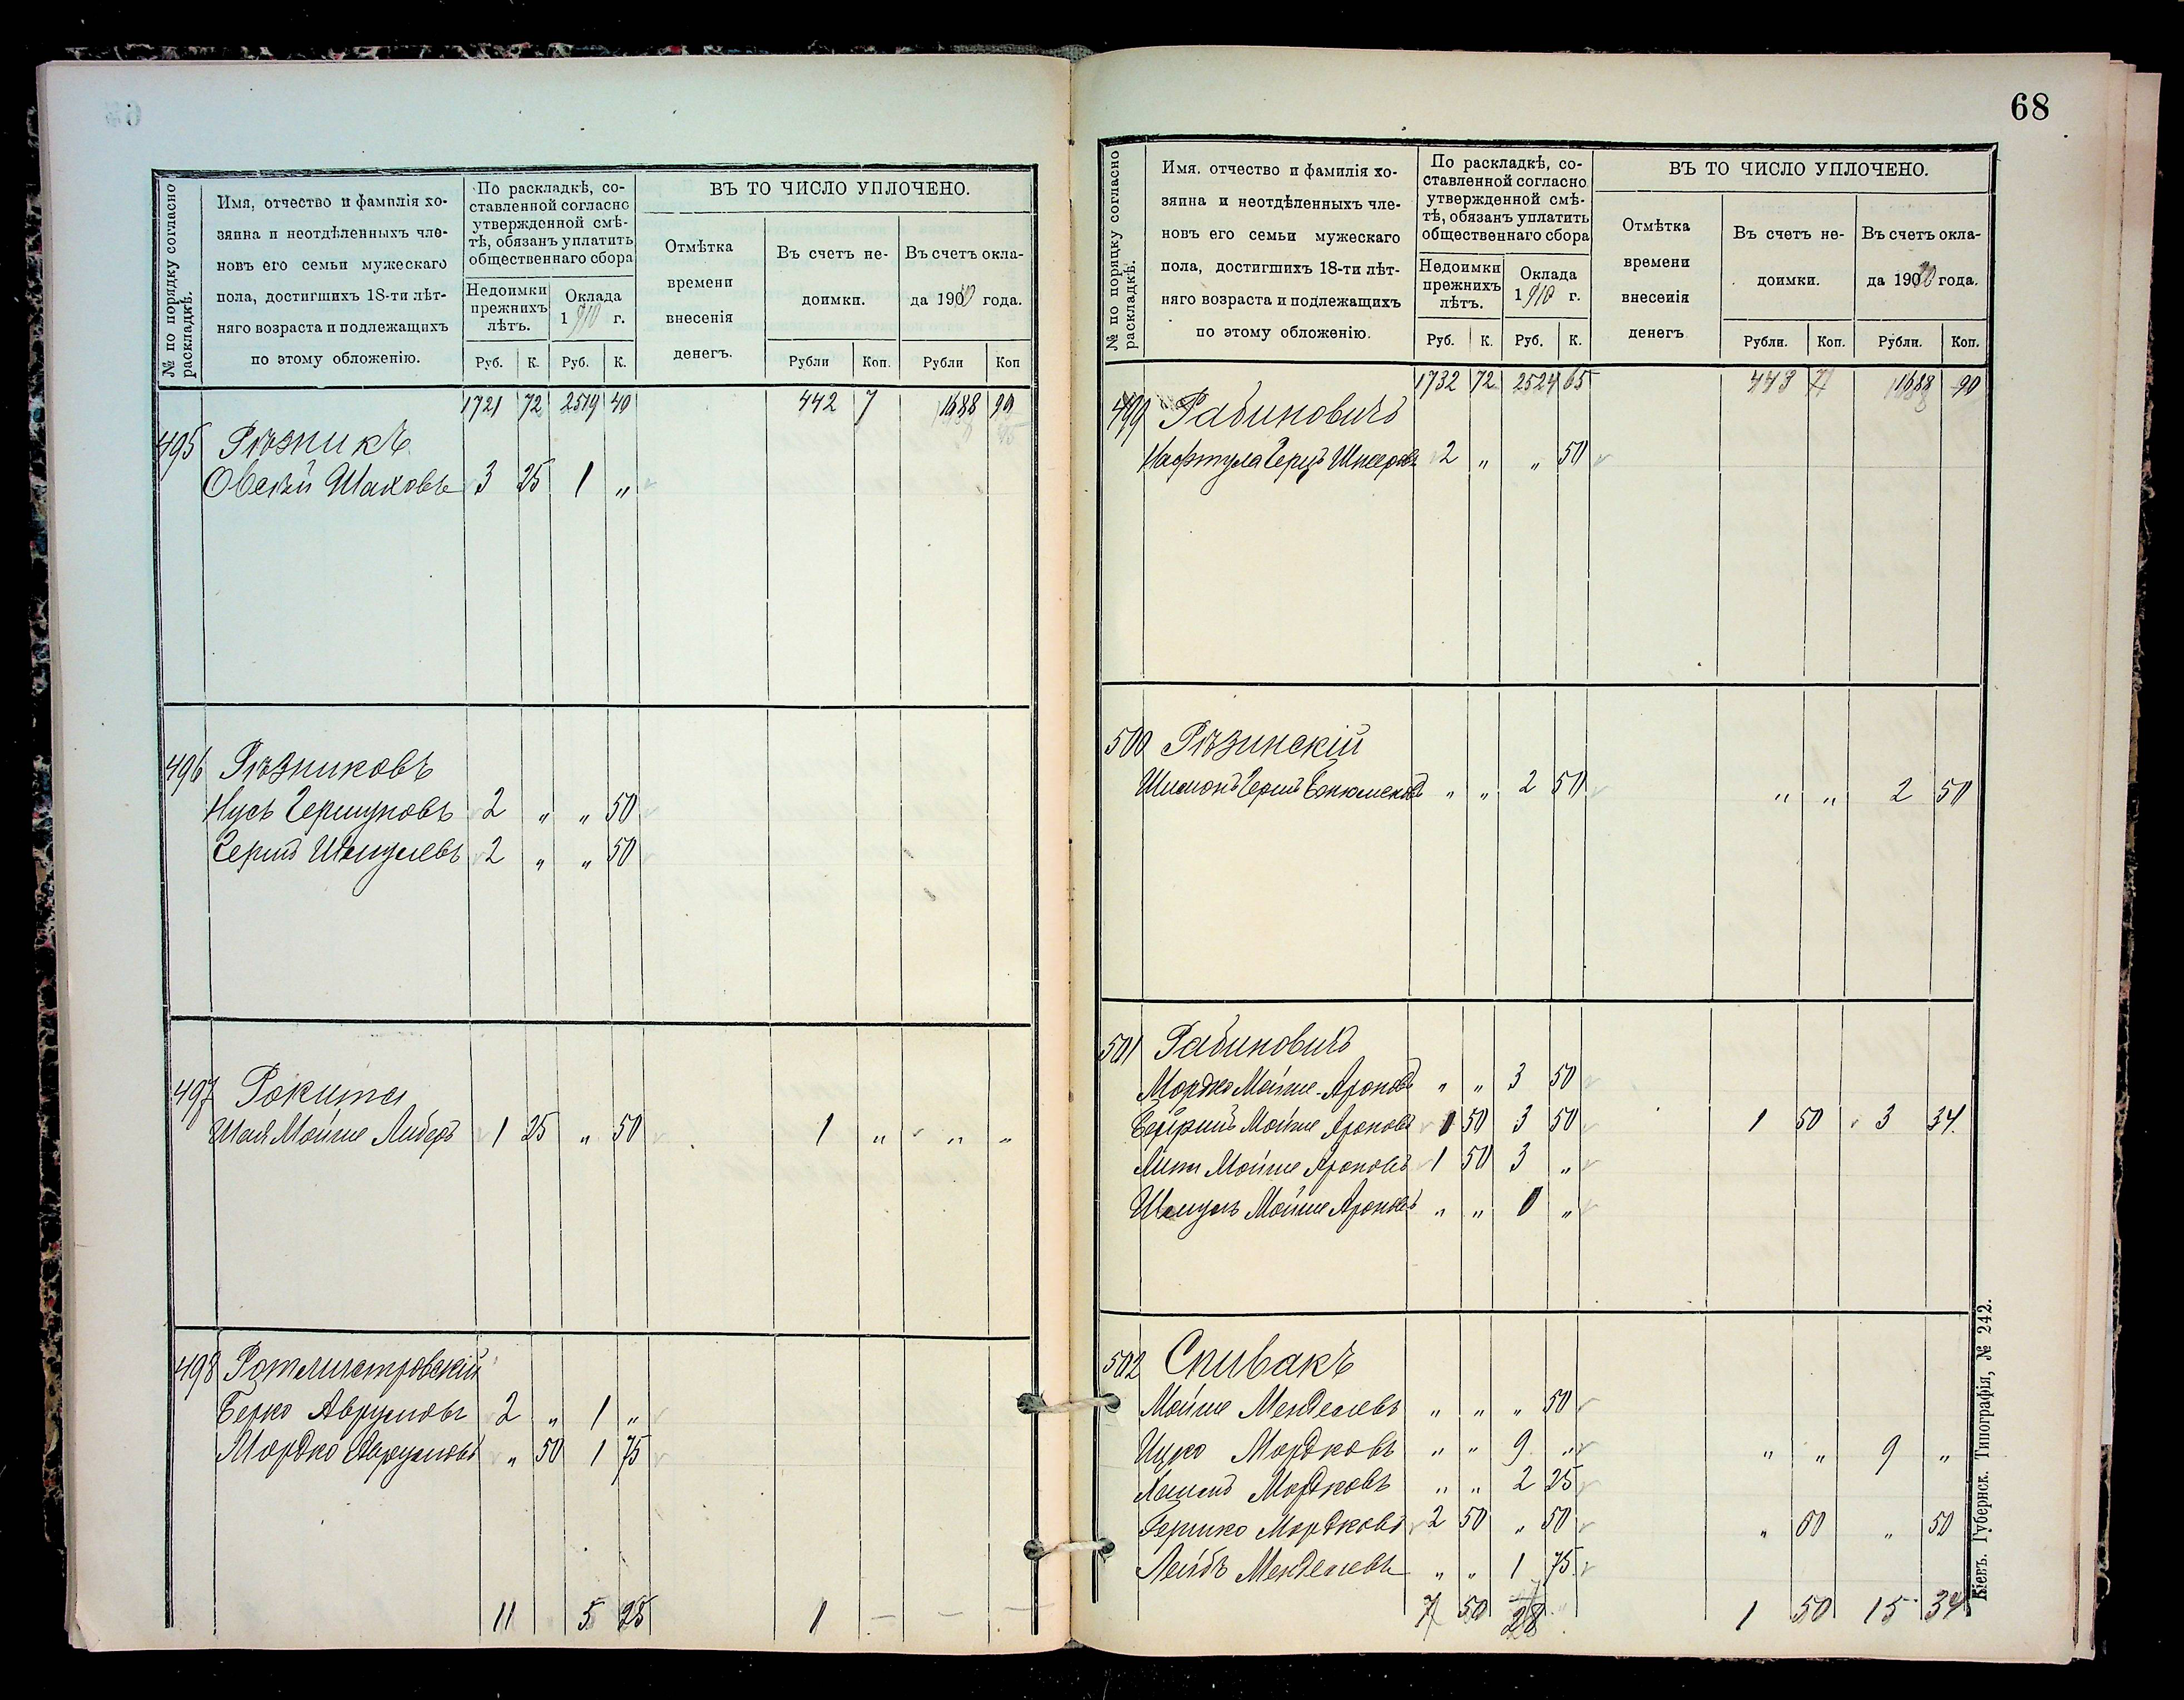 № по порядку согласно раскладкѣ.
Имя, отчество и фамилія хо-
зяина и неотдѣленныхъ чле-
новъ его семьи мужескаго
пола, достигшихъ 18-ти лѣт-
няго возраста и подлежащихъ
по этому обложенію.
По раскладкѣ, со-
ставленной согласно
утвержденной смѣ-
тѣ, обязанъ уплатить
общественнаго сбора
Недоимки
прежнихъ
лѣтъ.
Оклада
1910 г.
Руб. К. Руб. К.
ВЪ ТО ЧИСЛО УПЛОЧЕНО.
Отмѣтка
времени
внесенія
денегъ.
Въ счетъ не-
доимки.
Въ счетъ окла-
да 1910 года.
Рубли Коп. Рубли Коп
1721 72 2519 40 442 7 1688 90
495 Рѣзникъ
Овсѣй Шаховъ 3 25 1 "
496 Рѣзниковъ
Нусь Гершуновъ 2 " " 50
Гершъ Шмулевъ 2 " " 50
497 Рокита
Шая Мойше Либеръ 1 25 " 50 1 " " "
498 Ротмистровскій
Берко Аврумовъ 2 " 1 "
Мордко Аврумовъ " 50 1 75
11 5 25 1 — — —
68
№ по порядку согласно раскладкѣ.
Имя, отчество и фамилія хо-
зяина и неотдѣленныхъ чле-
новъ его семьи мужескаго
пола, достигшихъ 18-ти лѣт-
няго возраста и подлежащихъ
по этому обложенію.
По раскладкѣ, со-
ставленной согласно
утвержденной смѣ-
тѣ, обязанъ уплатить
общественнаго сбора
Недоимки
прежнихъ
лѣтъ.
Оклада
1910 г.
Руб. К. Руб. К.
ВЪ ТО ЧИСЛО УПЛОЧЕНО.
Отмѣтка
времени
внесенія
денегъ
Въ счетъ не-
доимки.
Въ счетъ окла-
да 1910 года.
Рубли. Коп. Рубли. Коп.
1732 72 2524 65 443 7 1688 90
499 Рабиновичъ
Нафтула Герцъ 2 " " 50
500 Рѣзинскій
Шимонъ Гершъ " " 2 50 " " 2 50
501 Рабиновичъ
Мордко Мойше-Ароновъ " " 3 50
Мойше Ароновъ 1 50 3 50 1 50 3 34
Мойше Ароновъ 1 50 3 "
Шмуль Мойше Ароновъ " " "
502 Спивакъ
Мойше Менделевъ " " " 50
Ицко Мордковъ " " 9 " " " 9 "
Мордковъ " " 2 25
Гершко Мордковъ 2 50 " 50 " " 50
Лейбъ Менделевъ " " 1 75
7 50 28 1 50 15 34
Кіевъ. Губернск. Типографія, № 242.